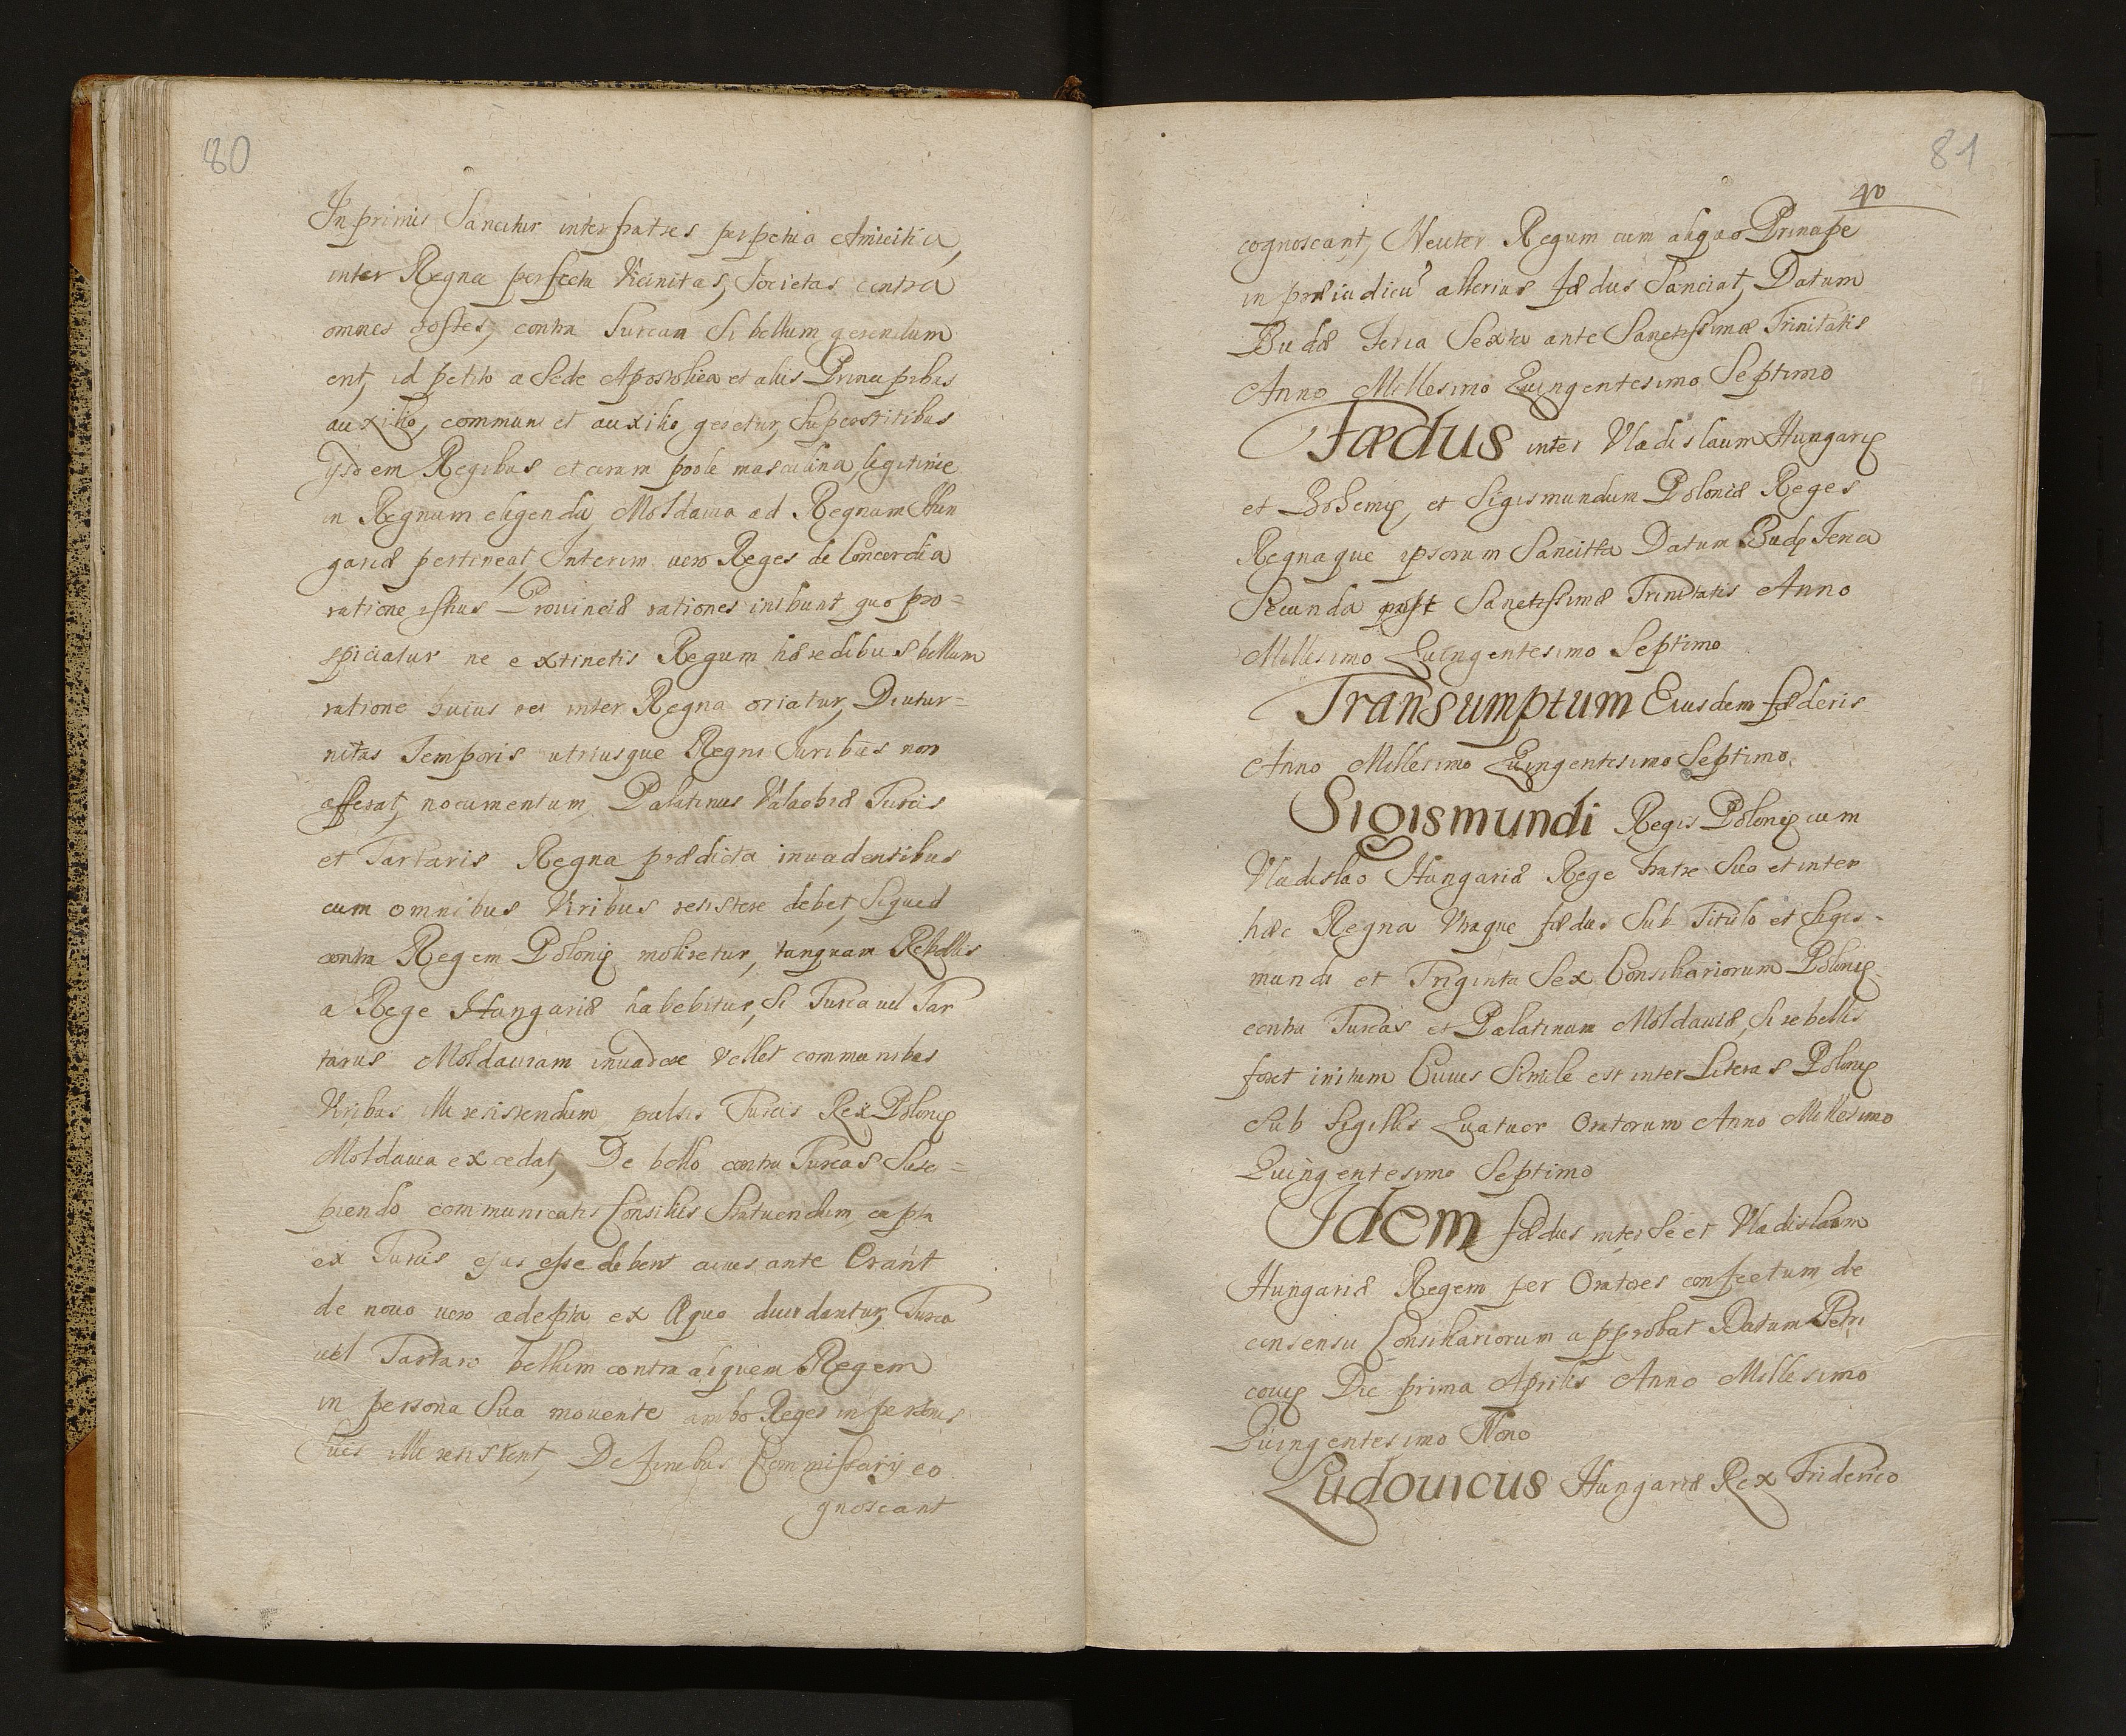 80
In primis Sancitur inter fratres perpetua Amicitia,
inter Regna perfecta Vicinitas, Societas contra
omnes hostes, contra Turcam Si bellum gerendum
erit, id petito a Sede Apostolica et aliis Principibus
auxilio, communi et auxilio geretur, Superstitibus
ijsdem Regibus et eorum prole masculina, legitime
in Regnum eligenda, Moldauia ad Regnum Hun
gariæ pertineat, Interim uero Reges de Concordia
ratione istius Prouinciæ rationes inibunt, quo pro=
spiciatur ne extinctis Regum hæredibus bellum
ratione huius rei inter Regna oriatur, Diutur=
nitas Temporis utriusque Regni Juribus non
afferat, nocumentum, Palatinus Valachiæ Turcis
et Tartaris Regna prædicta inuadentibus
cum omnibus Viribus resistere debet, Siquid
contra Regem Polonię moliretur, tanquam Rebellis
a Rege Hungariæ habebitur, Si Turca uel Tar
tarus Moldauiam inuadere vellet communibus
Viribus illi resistendum, pulsis Turcis Rex Polonię
Moldauia excedat, De bello contra Turcas Susc=
piendo communicatis Consiliis Statuendum, capta
ex Turcis ejus esse debent cuius ante Erant
de nouo uero adepta ex Æquo diuidantur, Turca
uel Tartaro bellum contra aliquem Regem
in persona Sua mouente ambo Reges in personis
Suis illi resistent, De finibus Commissarij co
gnoscant
81
40
cognoscant, Neuter Regum cum aliquo Principe
in præiudiciũ alterius fædus Sanciat, Datum
Budæ Feria Sexta ante Sanctissimæ Trinitatis
Anno Millesimo Quingentesimo Septimo
Fædus inter Vladislaum Hungarię
et Bohemię, et Sigismundum Poloniæ Reges
Regnaque ipsorum Sancitta Datum Budę Feria
Secunda post Sanctissimæ Trinitatis Anno
Millesimo Quingentesimo Septimo
Transumptum Eiusdem fæderis
Anno Millesimo Quingentesimo Septimo.
Sigismundi Regis Polonię cum
Vladislao Hungariæ Rege fratre Suo et inter
hæc Regna Vtraque fædus Sub Titulo et Sigis-
mundi et Triginta Sex Consiliariorum Polonię
contra Turcas et Palatinum Moldauiæ, Si rebellis
foret initum Cuius Simile est inter Literas Polonię
Sub Sigillis Quatuor Oratorum Anno Millesimo
Quingentesimo Septimo
Idem fædus inter Se et Vladislaum
Hungariæ Regem per Oratores confectum, de
consensu Consiliariorum approbat Datum Petri
couię Die prima Aprilis Anno Millesimo
Quingentesimo Nono
Ludouicus Hungariæ Rex Friderico